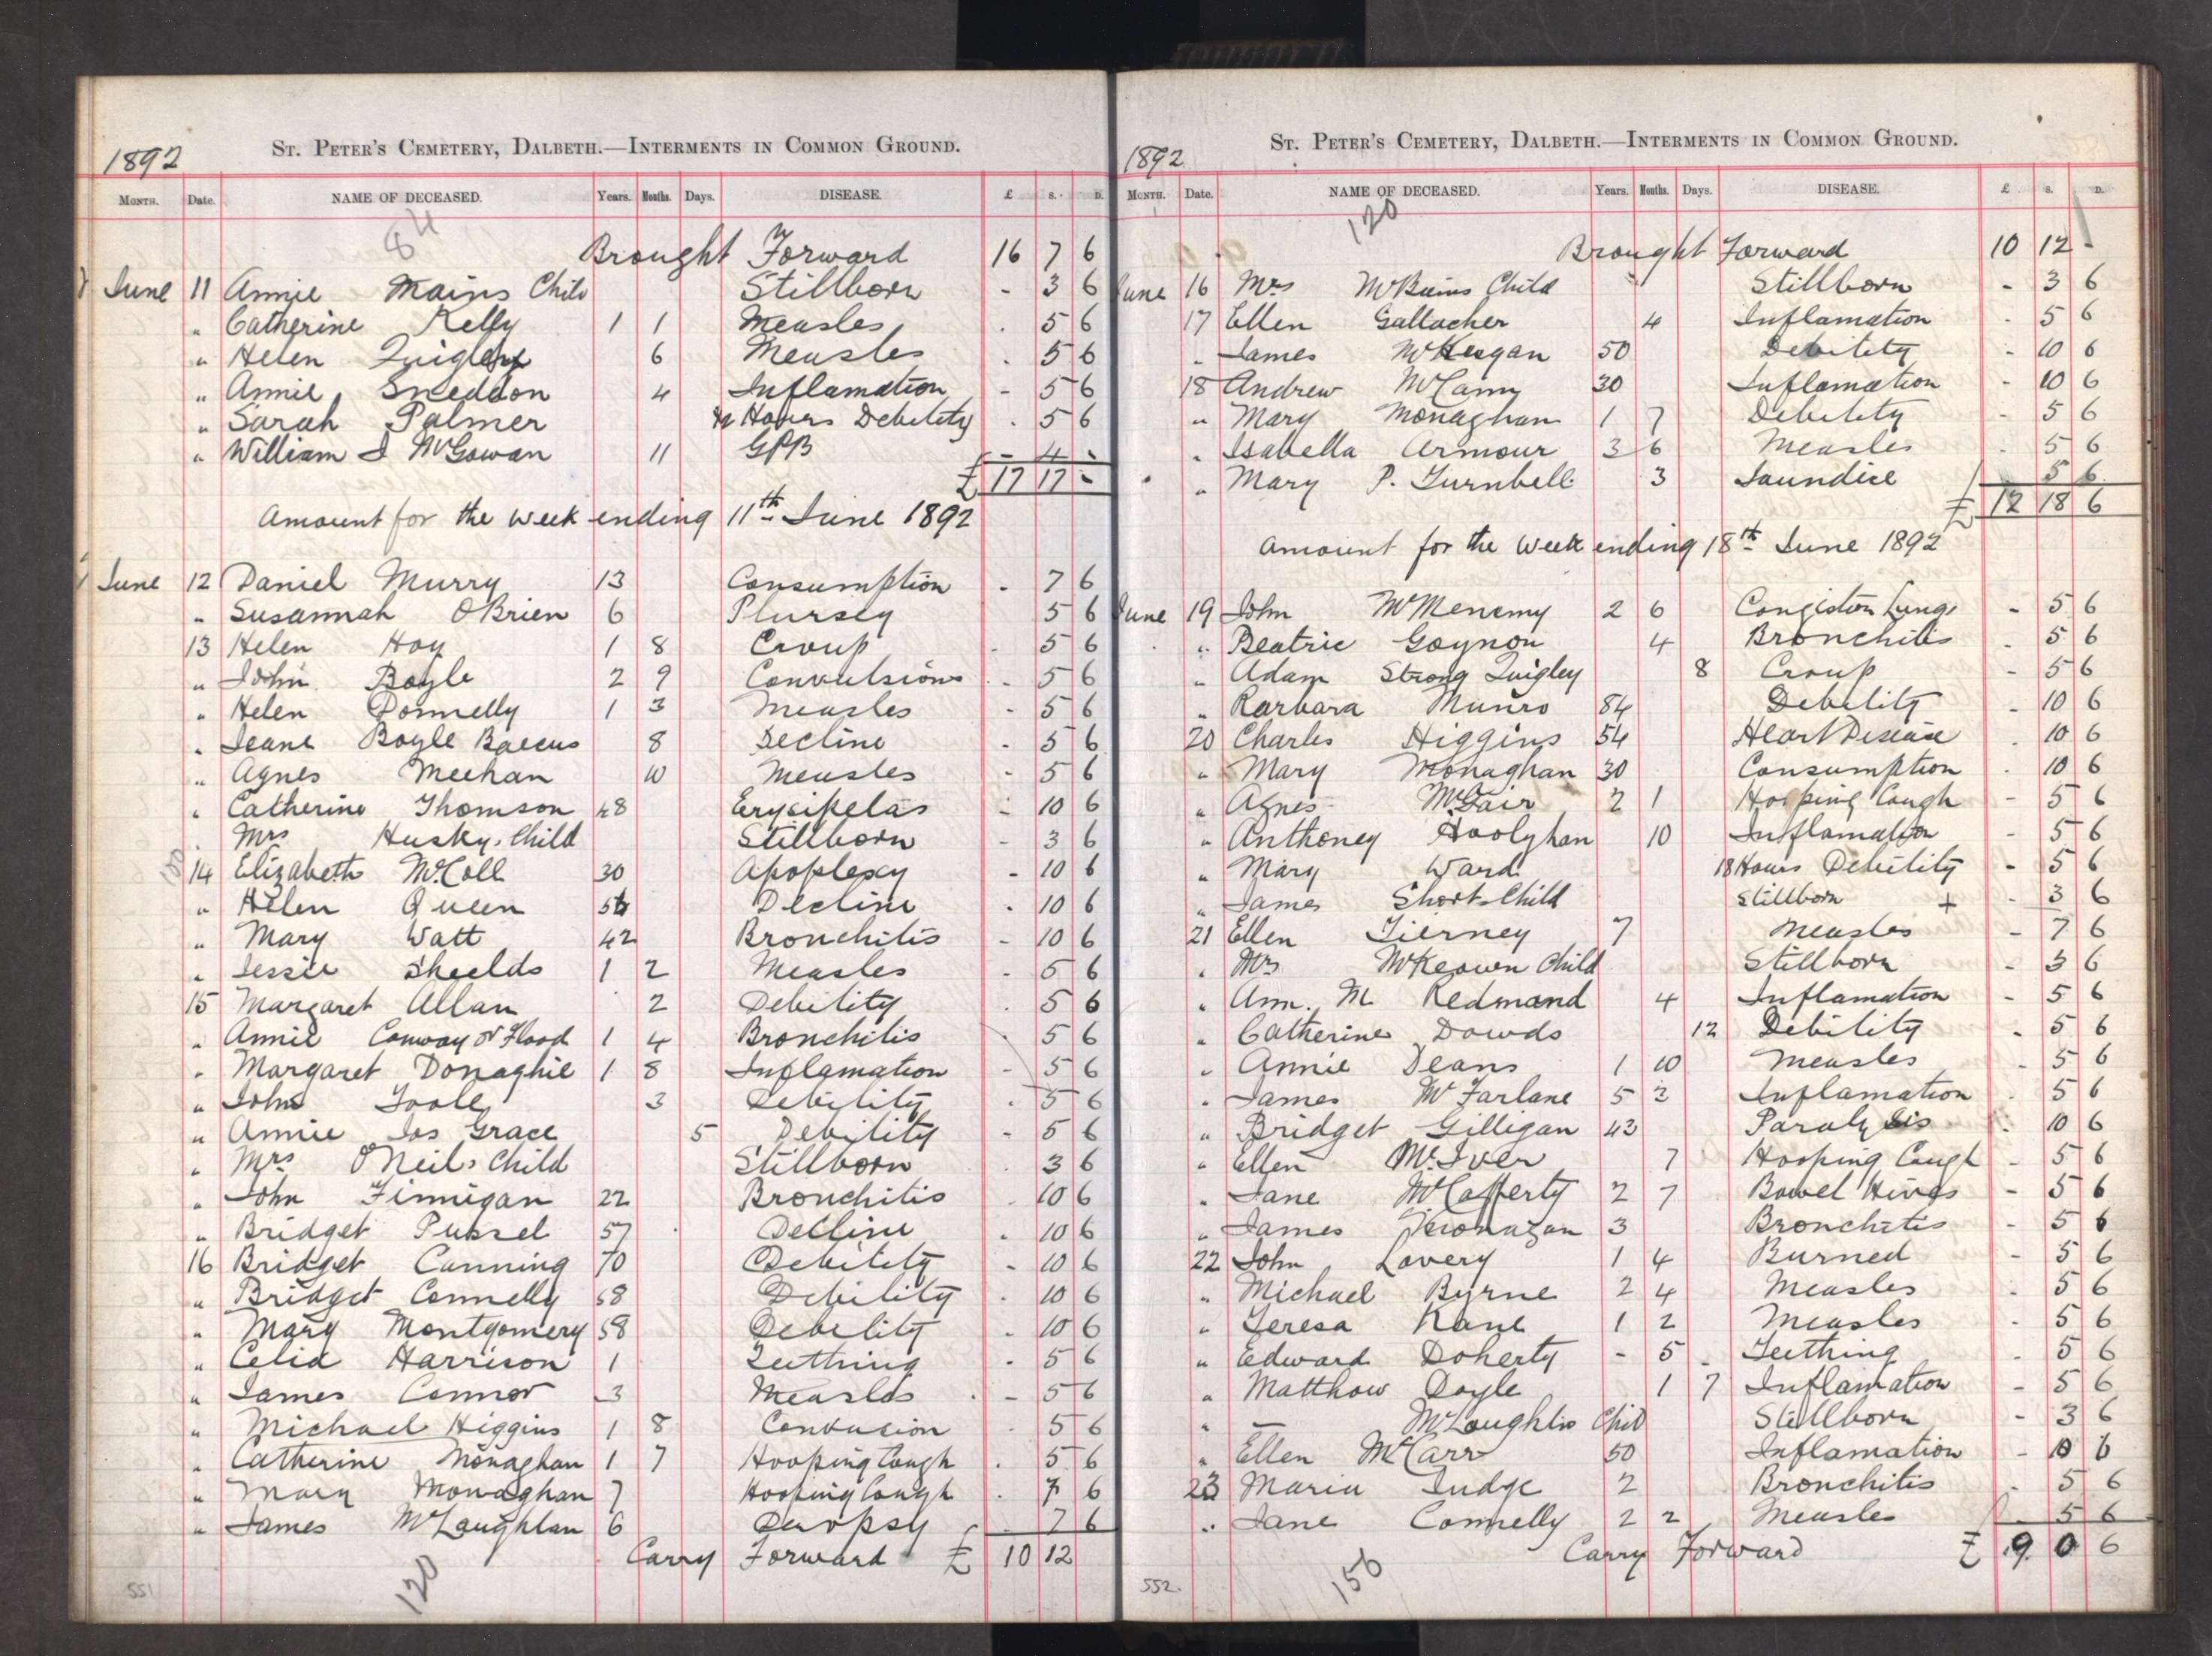 1892
ST. PETER'S CEMETERY, DALBETH.—INTERMENTS IN COMMON GROUND.
MONTH. Date. NAME OF DECEASED. Years. Months. Days. DISEASE. £ S. D.
84
Brought Forward 16 7 6
June 11 Annie Mains Child Stillborn - 3 6
" Catherine Kelly 1 1 Measles . 5 6
" Helen Quigley 6 Measles . 5 6
" Annie Sneddon 4 Inflamation - 5 6
" Sarah Palmer Hours Debility . 5 6
" William J McGowan 11 GPB - 4 -
£ 17 17 -
Amount for the week ending 11th June 1892
June 12 Daniel Murry 13 Consumption . 7 6
" Susannah OBrien 6 Plursey 5 6
13 Helen Hoy 1 8 Croup - 5 6
" John Boyle 2 9 Convulsions - 5 6
" Helen Donnelly 1 3 Measles - 5 6
" Jeane Boyle Baccus 8 Decline - 5 6
" Agnes Meehan 10 Measles - 5 6
" Catherine Thomson 48 Erysipelas - 10 6
" Mrs Husky Child Stillborn - 3 6
14 Elizabeth McColl 30 Apoplexy - 10 6
" Helen Queen Decline . 10 6
" Mary Watt 42 Bronchitis - 10 6
" Jessie Sheelds 1 2 Measles - 5 6
15 Margaret Allan 2 Debility . 5 6
" Annie Conway or Flood 1 4 Bronchitis 5 6
" Margaret Donaghie 1 8 Inflamation - 5 6
" John Toole 3 Debility . 5 6
" Annie Jos Grace 5 Debility - 5 6
" Mrs ONeils Child Stillborn . 3 6
" John Finnigan 22 Bronchitis . 10 6
" Bridget Purcel 57 Decline . 10 6
16 Bridget Canning 70 Debility - 10 6
" Bridget Connelly 58 Debility . 10 6
" Mary Montgomery 58 Debility . 10 6
" Celia Harrison 1 Teething . 5 6
" James Connor 3 Measles - 5 6
" Michael Higgins 1 8 Convusion . 5 6
" Catherine Monaghan 1 7 Hooping Cough . 5 6
" Mary Monaghan 7 Hooping Cough . 7 6
" James McLaughlan 6 Dropsy . 7 6
Carry Forward £ 10 12
120
551
1892
ST. PETER'S CEMETERY, DALBETH.—INTERMENTS IN COMMON GROUND.
MONTH. Date. NAME OF DECEASED. Years. Months. Days. DISEASE. £ S. D.
120
Brought Forward 10 12 -
June 16 Mrs McBains Child Stillborn - 3 6
17 Ellen Gallacher 4 Inflamation . 5 6
" James McKeegan 50 Debility - 10 6
18 Andrew McCann 30 Inflamation - 10 6
" Mary Monaghan 1 7 Debility - 5 6
" Isabella Armour 3 6 Measles . 5 6
" Mary P. Turnbell 3 Jaundice 5 6
£ 12 18 6
Amount for the week ending 18th June 1892
June 19 John McMenemy 2 6 Congestion Lungs - 5 6
" Beatrice Goynon 4 Bronchitis . 5 6
" Adam Strong Quigley 8 Croup - 5 6
" Barbara Munro 84 Debility - 10 6
20 Charles Higgins 54 Heart Disease . 10 6
" Mary Monaghan 30 Consumption . 10 6
" Agnes McGair 2 1 Hooping Cough - 5 6
" Anthoney Hoolyhan 10 Inflamation - 5 6
" Mary Ward 18 Hours Debility - 5 6
" James Short Child Stillborn + . 3 6
21 Ellen Tierney 7 Measles - 7 6
" Mrs McKeown Child Stillborn - 3 6
" Ann. M Redmond 4 Inflamation - 5 6
" Catherine Dowds 12 Debility . 5 6
" Annie Deans 1 10 Measles . 5 6
" James McFarlane 5 3 Inflamation . 5 6
" Bridget Gilligan 43 Paralysis . 10 6
" Ellen McIver 7 Hooping Cough - 5 6
" Jane McCafferty 2 7 Bowel Hives - 5 6
" James 3 Bronchitis - 5 6
22 John Lavery 1 4 Burned - 5 6
" Michael Byrne 2 4 Measles . 5 6
" Teresa Kane 1 2 Measles . 5 6
" Edward Doherty - 5 Teething . 5 6
" Matthow Doyle 1 7 Inflamation - 5 6
" — McLaughlin Child Stillborn - 3 6
" Ellen McCarr 50 Inflamation - 10 6
23 Maria Judge 2 Bronchitis . 5 6
" Jane Connelly 2 2 Measles 5 6
Carry Forward £ 9 0 6
156
552.